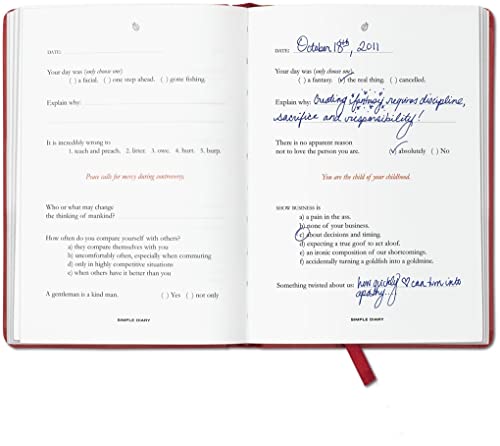 DATE:
Your day was (only choose one):
( ) a facial. ( ) one step ahead. ( ) gone fishing.
Explain why:
It is incredibly wrong to
1. teach and preach. 2. litter. 3. owe. 4. hurt. 5. burp.
Peace calls for mercy during controversy.
Who or what may change
the thinking of mankind?
How often do you compare yourself with others?
a) they compare themselves with you
b) uncomfortably often, especially when commuting
d) only in highly competitive situations
e) when others have it better than you
A gentleman is a kind man. ( ) Yes ( ) not only
SIMPLE DIARY
DATE: October 18th, 2011
Your day was (only choose one):
( ) a fantasy. (✓) the real thing. ( ) cancelled.
Explain why: Creating fantasy requires discipline,
sacrifice and responsibility!
There is no apparent reason
not to love the person you are. (✓) absolutely ( ) No
You are the child of your childhood.
SHOW BUSINESS IS
a) a pain in the ass.
b) none of your business.
c) about decisions and timing.
d) expecting a true goof to act aloof.
e) an ironic composition of our shortcomings.
f) accidentally turning a goldfish into a goldmine.
Something twisted about us: how quickly ♡ can turn into
apathy...
SIMPLE DIARY